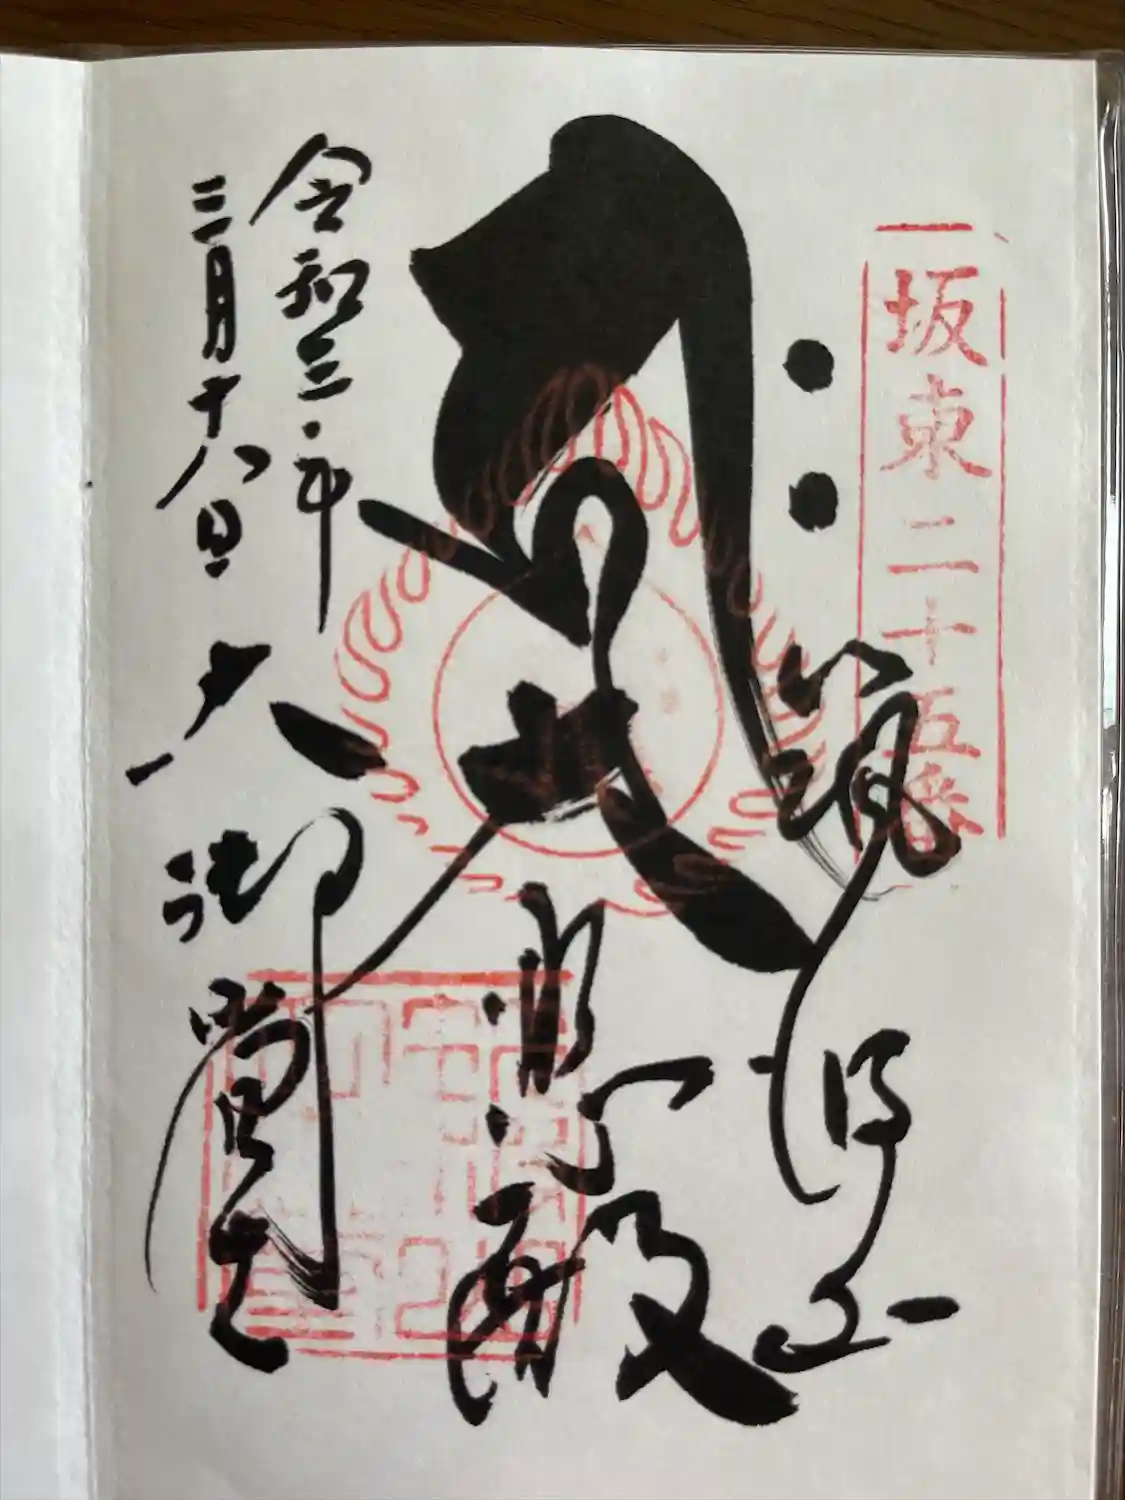 坂東二十五番
筑波山
大悲殿
令和三年
三月十八日
大御堂